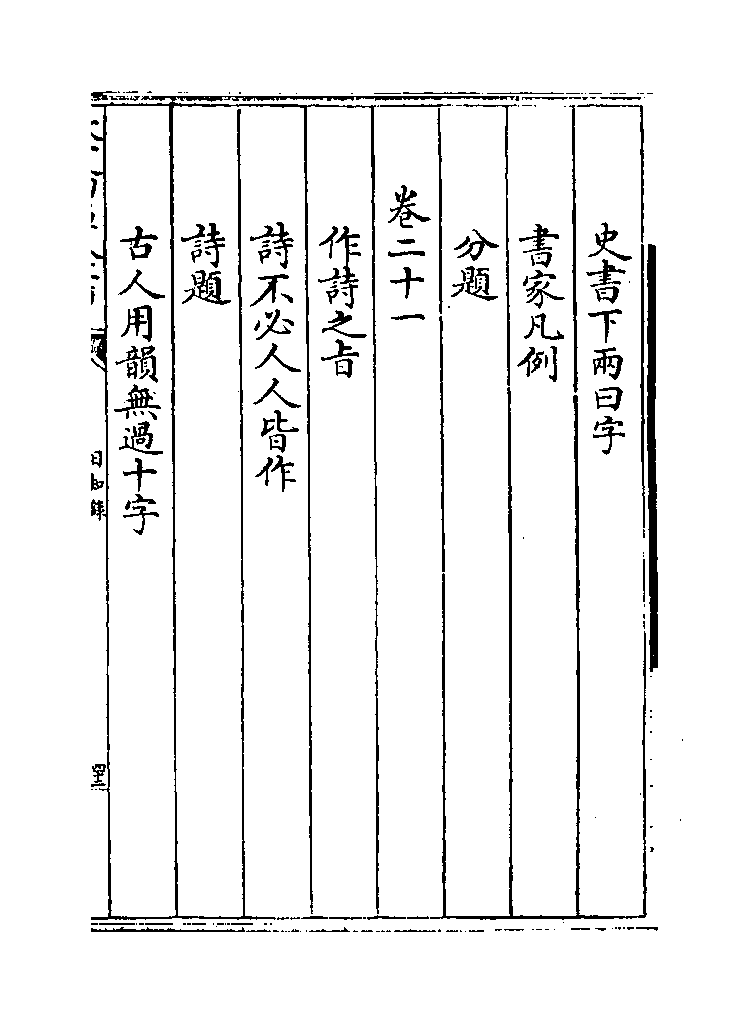 史書下兩曰字
書家凡例
分題
卷二十一
作詩之旨
詩不必人人皆作
詩題
古人用韻無過十字
日知錄